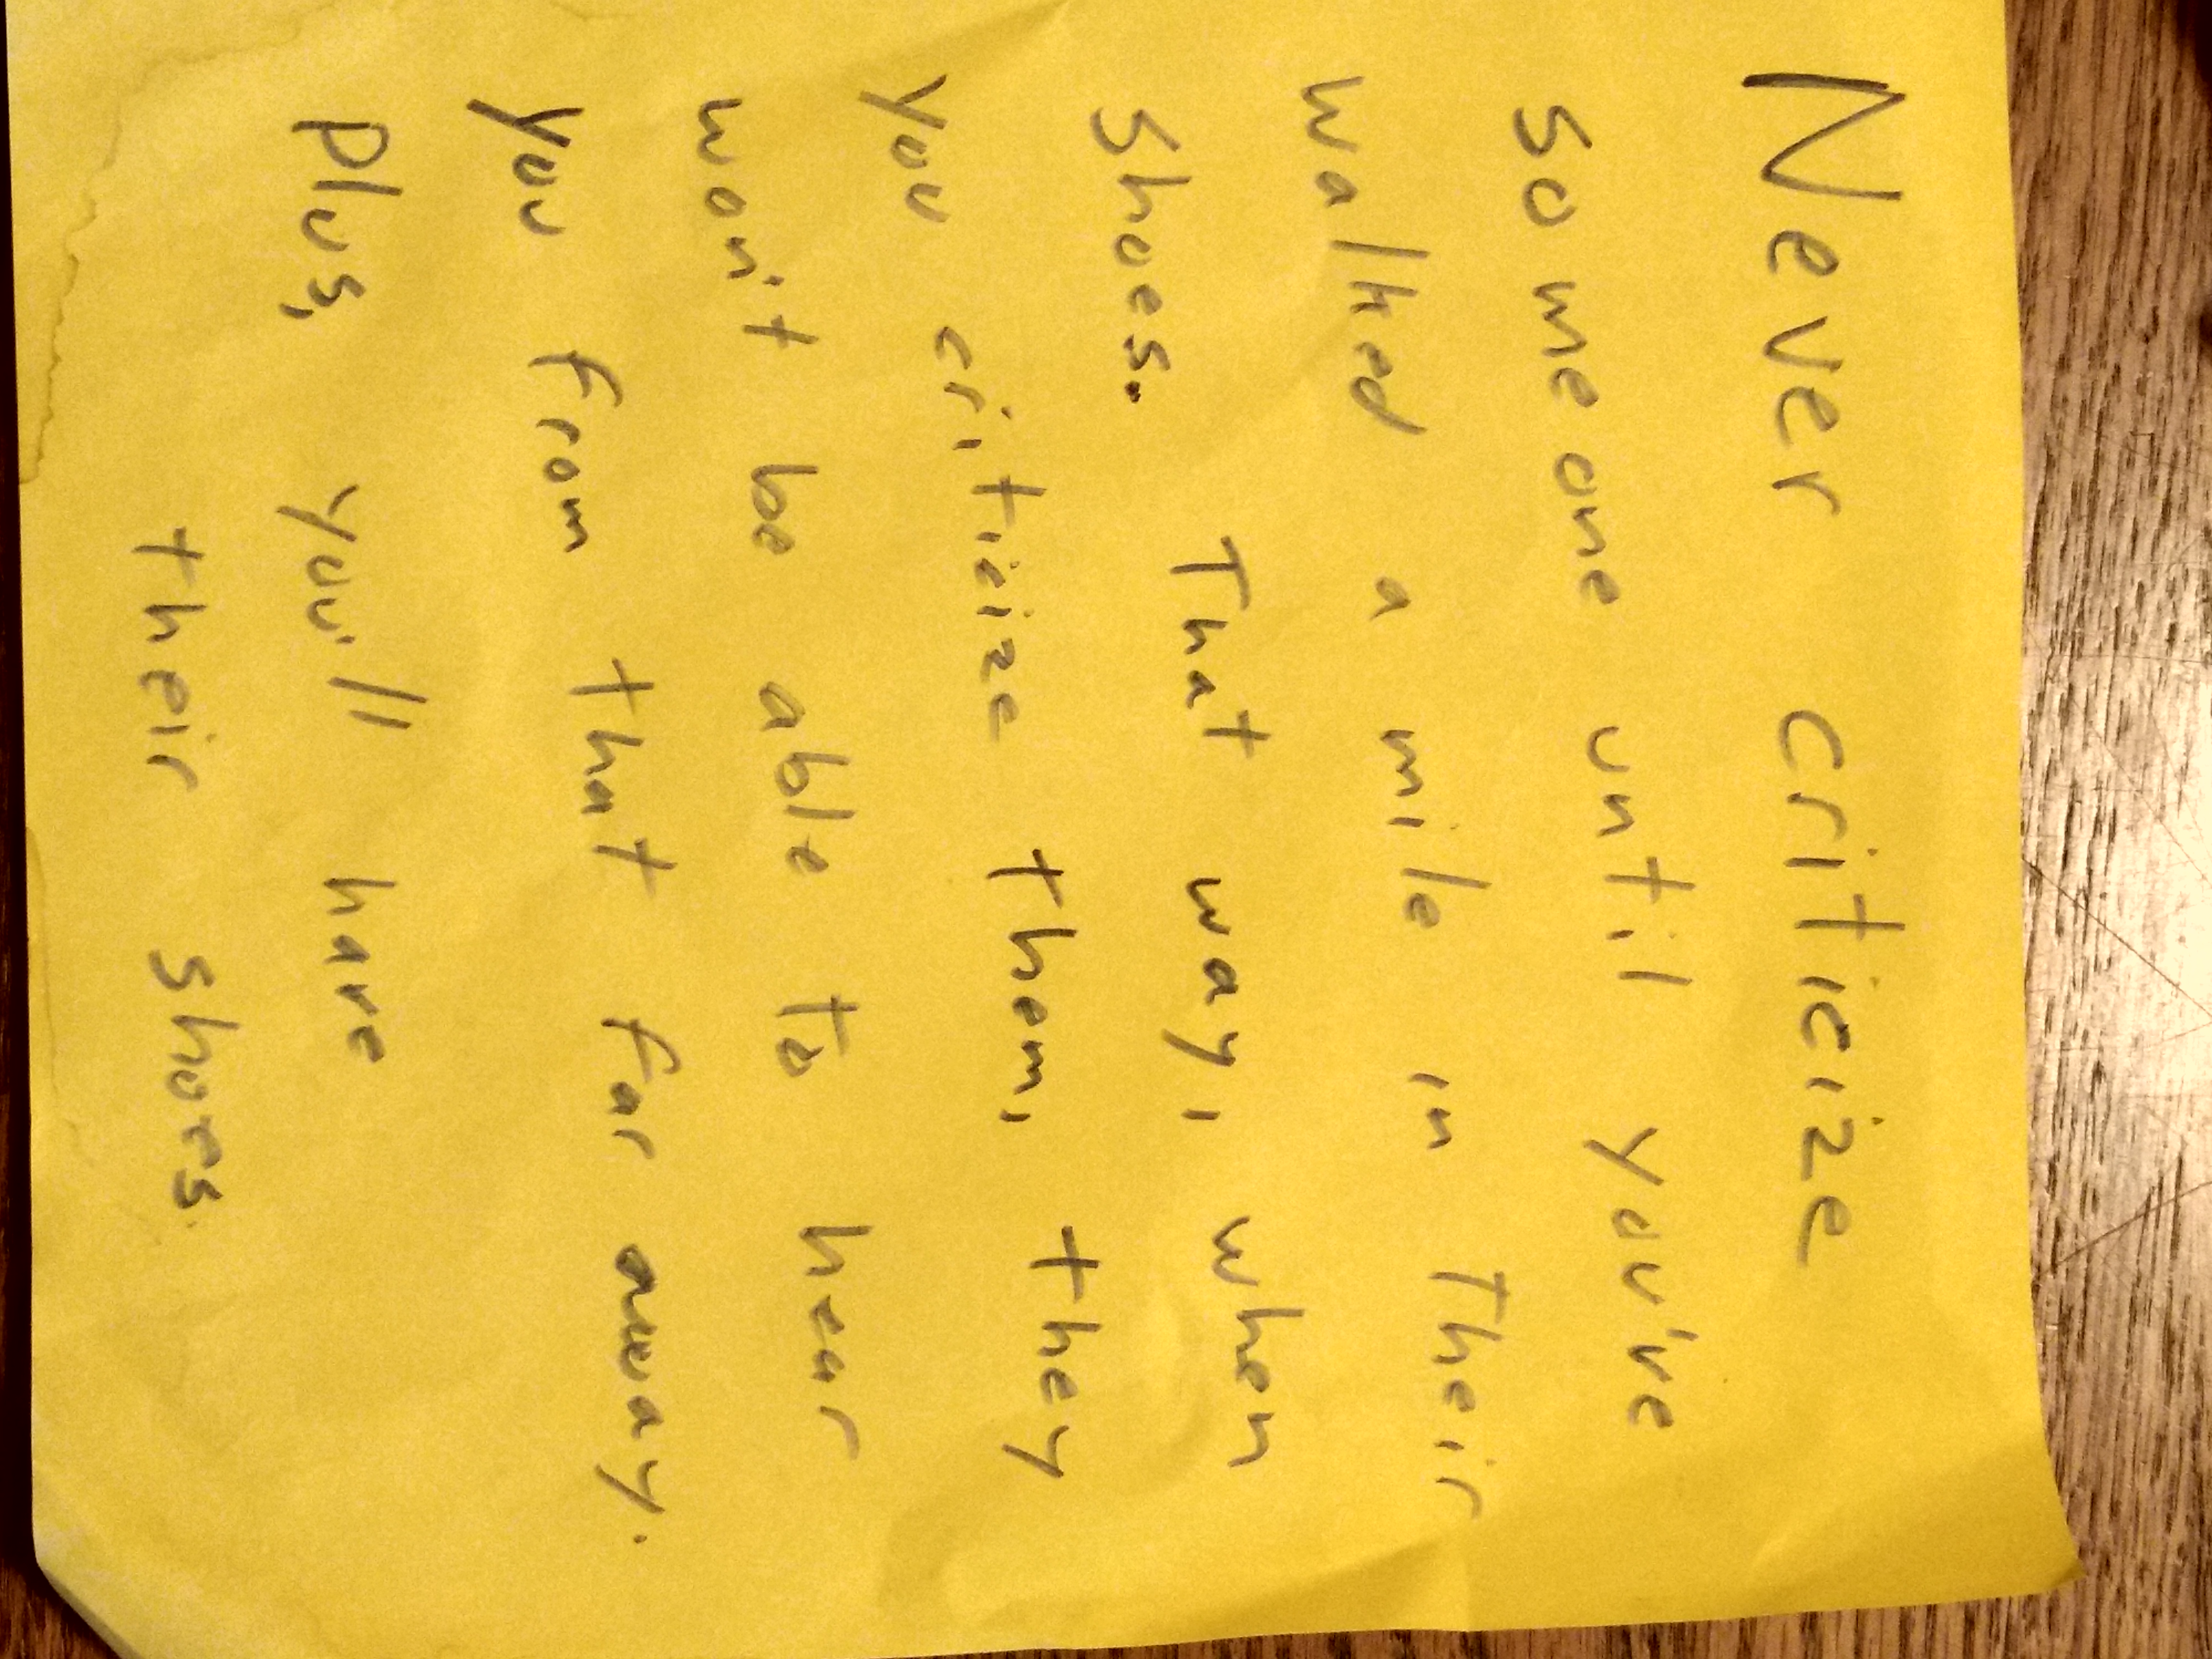 Never criticize
someone until you've
walked a mile in their
shoes. That way, when
you criticize them, they
won't be able to hear
you from that far away.
Plus, you'll have
their shoes.